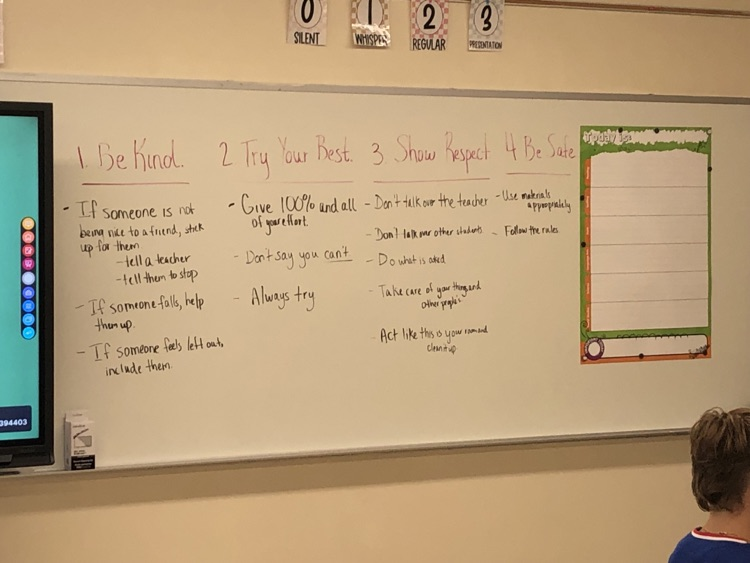 0
SILENT
1
WHISPER
2
REGULAR
3
PRESENTATION
1. Be Kind.
- If someone is not
being nice to a friend, stick
up for them
- tell a teacher
- tell them to stop
- If someone falls, help
them up.
- If someone feels left out,
include them.
2 Try Your Best.
- Give 100% and all
of your effort.
- Don't say you can't.
- Always try
3 Show Respect
- Don't talk over the teacher
- Don't talk over other students
- Do what is asked
- Take care of your things and
other people's
- Act like this is your room and
clean it up
4 Be Safe
- Use materials
appropriately
- Follow the rules.
Today is:
394403